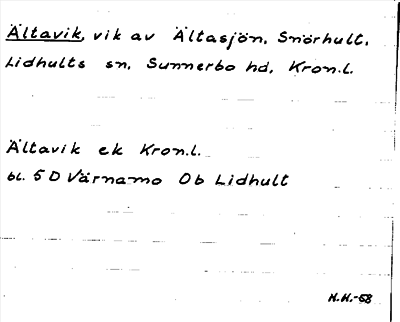 Ältavik, vik av Ältasjön, Snörhult,
Lidhults sn, Sunnerbo hd, Kron.l.
Ältavik ek Kron.l.
bl. 5D Värnamo Ob Lidhult
H.H.-68